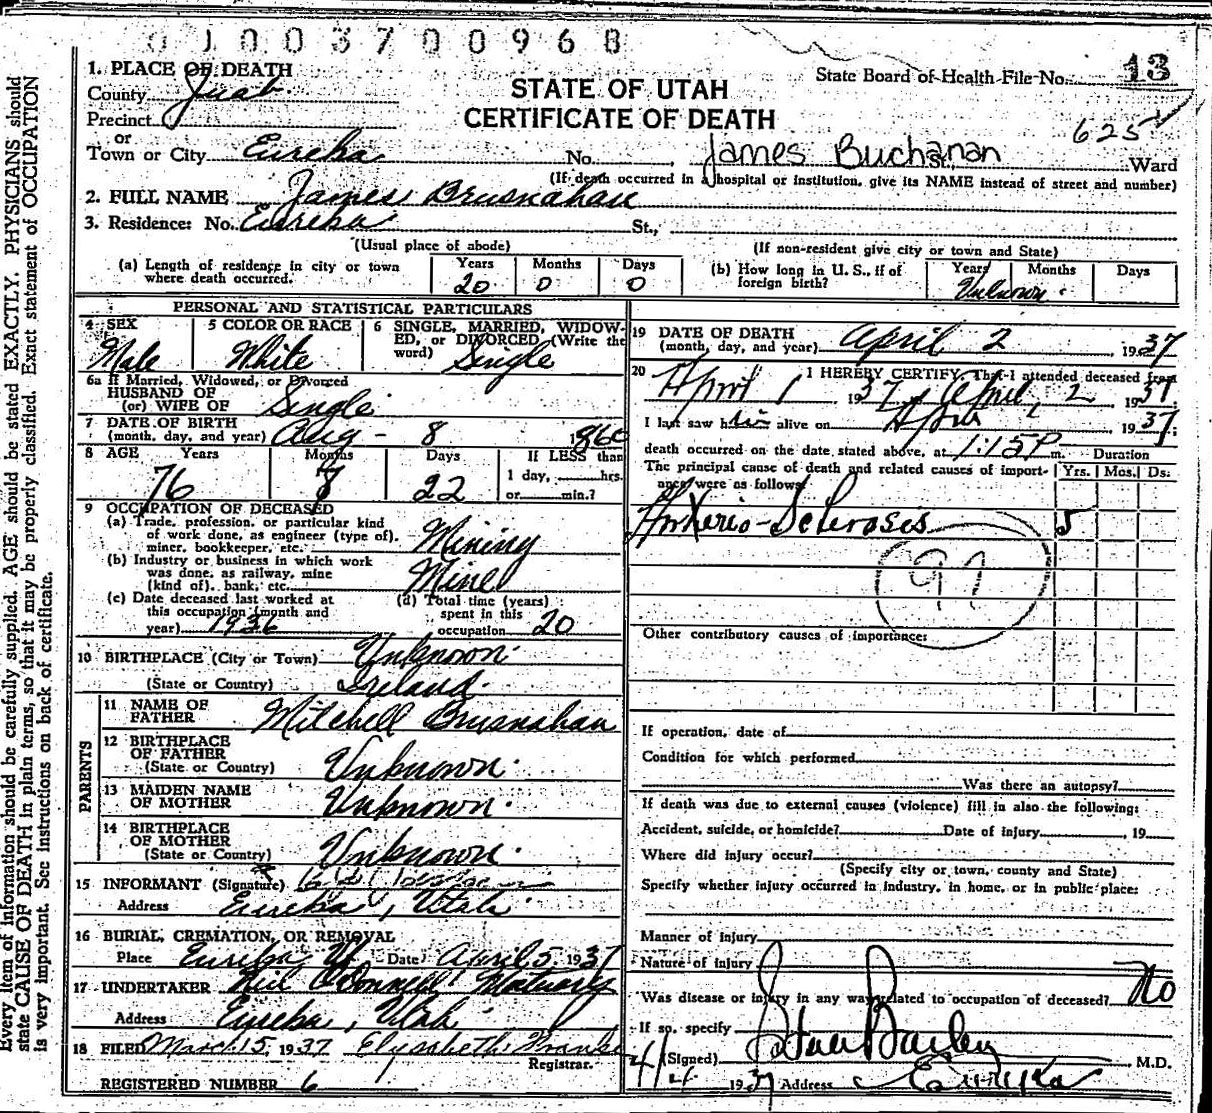 0100370 0968
1. PLACE OF DEATH
County Juab
Precinct
or
Town or City Eureka No. James Buchanan St. Ward
STATE OF UTAH
CERTIFICATE OF DEATH
State Board of Health File No. 13
625
(If death occurred in a hospital or institution, give its NAME instead of street and number)
2. FULL NAME James Brusnahan
3. Residence: No. Eureka St.,
(Usual place of abode) (If non-resident give city or town and State)
(a) Length of residence in city or town where death occurred. Years 20 Months 0 Days 0
(b) How long in U. S., if of foreign birth? Years Months Days Unknown.
PERSONAL AND STATISTICAL PARTICULARS
4 SEX Male
5 COLOR OR RACE White
6 SINGLE, MARRIED, WIDOWED, or DIVORCED (Write the word) Single
6a If Married, Widowed, or Divorced
HUSBAND OF
(or) WIFE OF Single
7 DATE OF BIRTH
(month, day, and year) Aug - 8 1860
8 AGE Years 76 Months Days 22 If LESS than
1 day, hrs.
or min.?
9 OCCUPATION OF DECEASED
(a) Trade, profession, or particular kind
of work done, as engineer (type of).
miner, bookkeeper, etc. Mining
(b) Industry or business in which work
was done, as railway, mine
(kind of), bank, etc. Mine
(c) Date deceased last worked at
this occupation (month and
year) 1936
(d) Total time (years)
spent in this
occupation 20
10 BIRTHPLACE (City or Town) Unknown.
(State or Country) Ireland.
PARENTS
11 NAME OF
FATHER Mitchell Brusnahan
12 BIRTHPLACE
OF FATHER
(State or Country) Unknown.
13 MAIDEN NAME
OF MOTHER Unknown.
14 BIRTHPLACE
OF MOTHER
(State or Country) Unknown.
15 INFORMANT (Signature)
Address Eureka, Utah.
16 BURIAL, CREMATION, OR REMOVAL
Place Eureka, U. Date April 5, 1937
17 UNDERTAKER Neil O'Donnell Mortuary
Address Eureka, Utah.
18 FILED March 15, 1937 Elysabeth Franke
Registrar.
REGISTERED NUMBER 6
19 DATE OF DEATH
(month, day, and year) April 2, 1937
20 I HEREBY CERTIFY, That I attended deceased from
April 1 1937, April, 2 1937
I last saw him alive on April 2 1937.
death occurred on the date stated above, at 1:15 P m. Duration
The principal cause of death and related causes of importance were as follows: Yrs. Mos. Ds.
Arterio-Sclerosis 5
97
Other contributory causes of importance:
If operation, date of
Condition for which performed
Was there an autopsy?
If death was due to external causes (violence) fill in also the following:
Accident, suicide, or homicide? Date of injury 19
Where did injury occur?
(Specify city or town, county and State)
Specify whether injury occurred in industry, in home, or in public place:
Manner of injury
Nature of injury
Was disease or injury in any way related to occupation of deceased? No
If so, specify
(Signed) Bailey M.D.
4/4 1937 Address Eureka
Every item of information should be carefully supplied. AGE should be stated EXACTLY. PHYSICIANS should
state CAUSE OF DEATH in plain terms, so that it may be properly classified. Exact statement of OCCUPATION
is very important. See instructions on back of certificate.